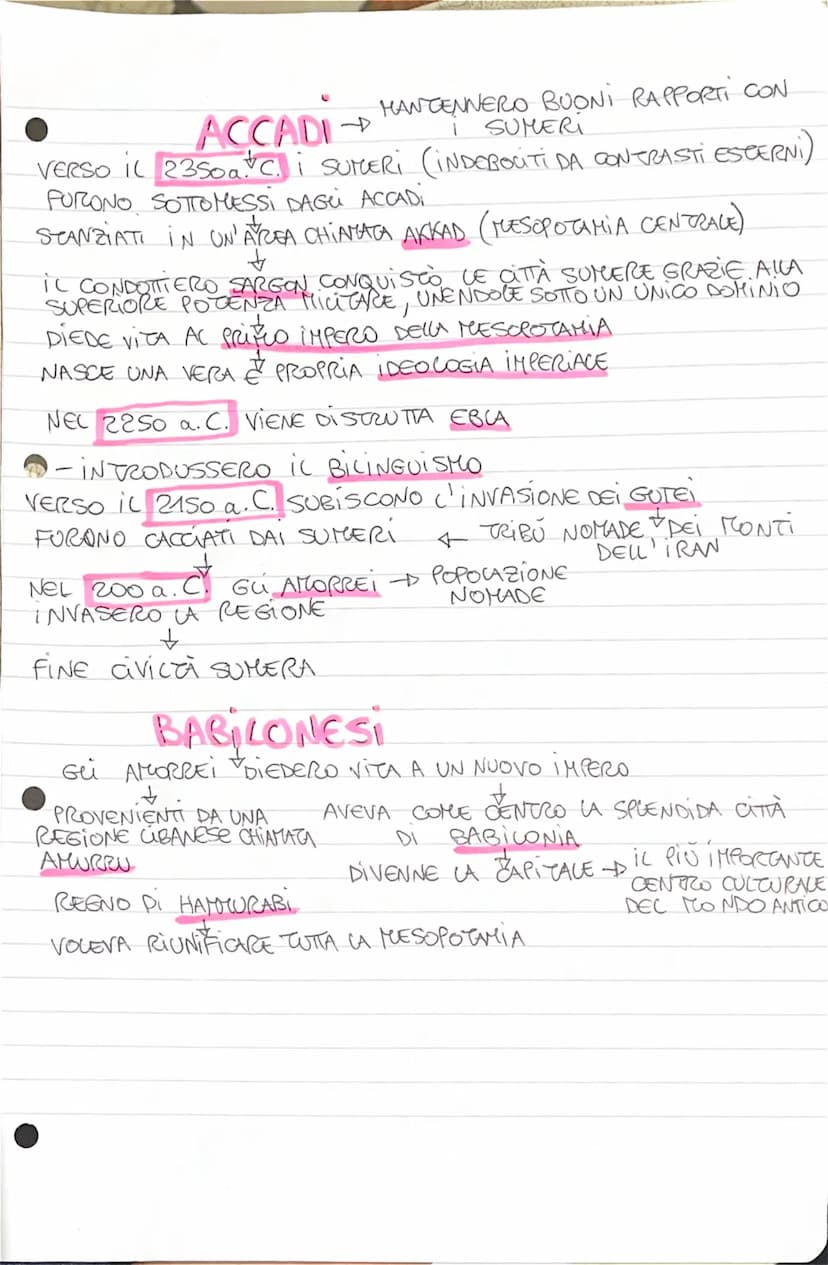 ACCADI → MANTENNERO BUONI RAPPORTI CON
I SUMERI
VERSO IL 2350 a.C. I SUMERI (INDEBOLITI DA CONTRASTI ESTERNI)
FURONO SOTTOMESSI DAGLI ACCADI
STANZIATI IN UN'AREA CHIAMATA AKKAD (MESOPOTAMIA CENTRALE)
IL CONDOTTIERO SARGON CONQUISTÒ LE CITTÀ SUMERE GRAZIE ALLA
SUPERIORE POTENZA MILITARE, UNENDOLE SOTTO UN UNICO DOMINIO
DIEDE VITA AL PRIMO IMPERO DELLA MESOPOTAMIA
NASCE UNA VERA E PROPRIA IDEOLOGIA IMPERIALE
NEL 2250 a.C. VIENE DISTRUTTA EBLA
- INTRODUSSERO IL BILINGUISMO
VERSO IL 2150 a.C. SUBISCONO L'INVASIONE DEI GUTEI
FURONO CACCIATI DAI SUMERI ← TRIBÚ NOMADE DEI MONTI
DELL'IRAN
NEL 200 a.C. GLI AMORREI → POPOLAZIONE
NOMADE
INVASERO LA REGIONE
FINE CIVILTÀ SUMERA
BABILONESI
GLI AMORREI DIEDERO VITA A UN NUOVO IMPERO
PROVENIENTI DA UNA
REGIONE LIBANESE CHIAMATA
AMURRU
AVEVA COME CENTRO LA SPLENDIDA CITTÀ
DI BABILONIA
DIVENNE LA CAPITALE → IL PIÙ IMPORTANTE
CENTRO CULTURALE
DEL MONDO ANTICO
REGNO DI HAMMURABI
VOLEVA RIUNIFICARE TUTTA LA MESOPOTAMIA